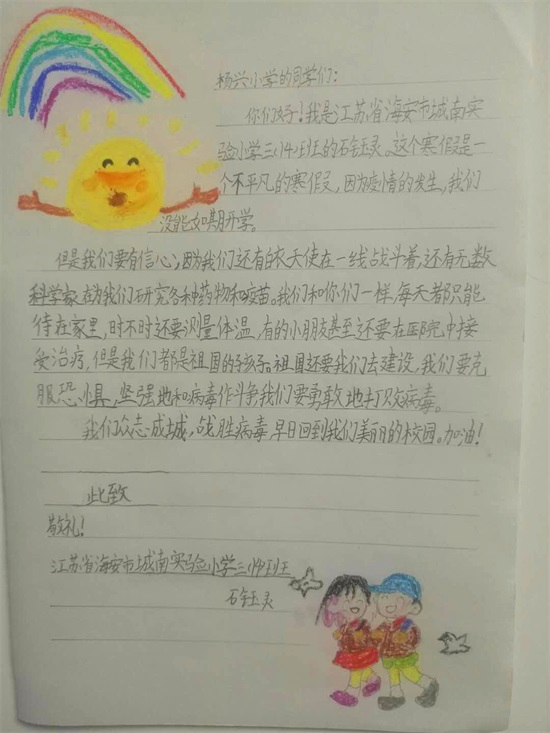 杨兴小学的同学们：
你们好！我是江苏省海安市城南实
验小学三(14)班的石钰灵。这个寒假是一
个不平凡的寒假，因为疫情的发生，我们
没能如期开学。
但是我们要有信心，因为我们还有白衣天使在一线战斗着，还有无数
科学家在为我们研究各种药物和疫苗。我们和你们一样，每天都只能
待在家里，时不时还要测量体温，有的小朋友甚至还要在医院中接
受治疗，但是我们都是祖国的孩子。祖国还要我们去建设，我们要克
服恐惧，坚强地和病毒作斗争我们要勇敢地打败病毒。
我们众志成城，战胜病毒，早日回到我们美丽的校园。加油！
此致
敬礼！
江苏省海安市城南实验小学三(14)班
石钰灵